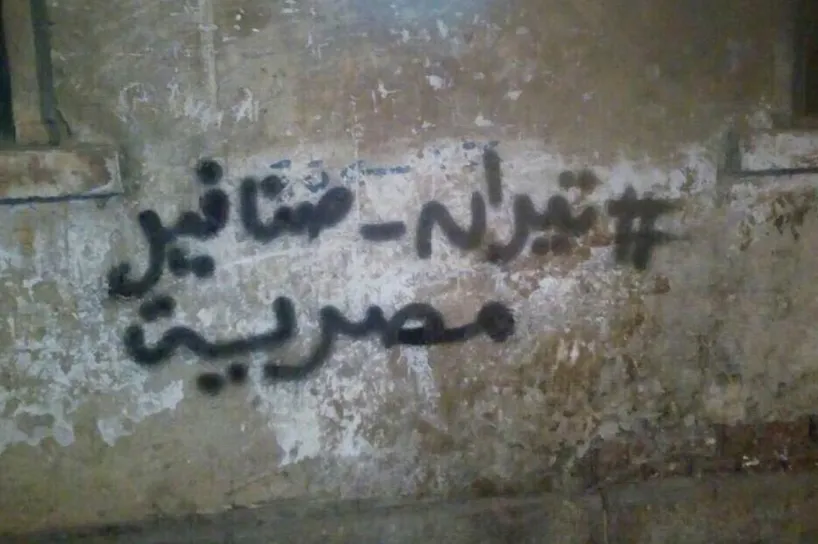 #تيران_صنافير
مصرية